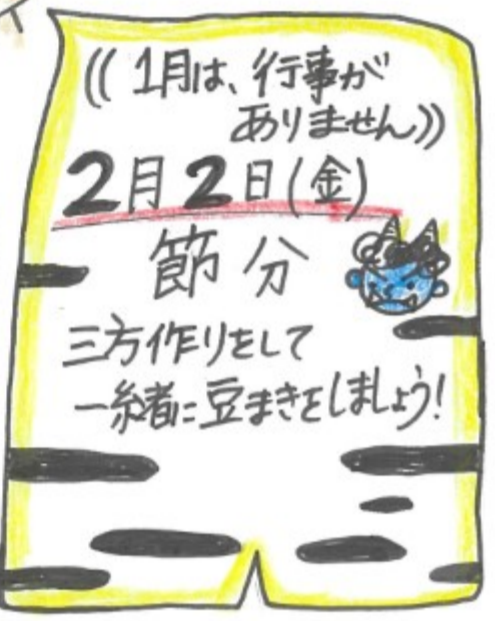 (( 1月は、行事が
ありません))
2月2日(金)
節分
三方作りをして
一緒に豆まきをしましょう!